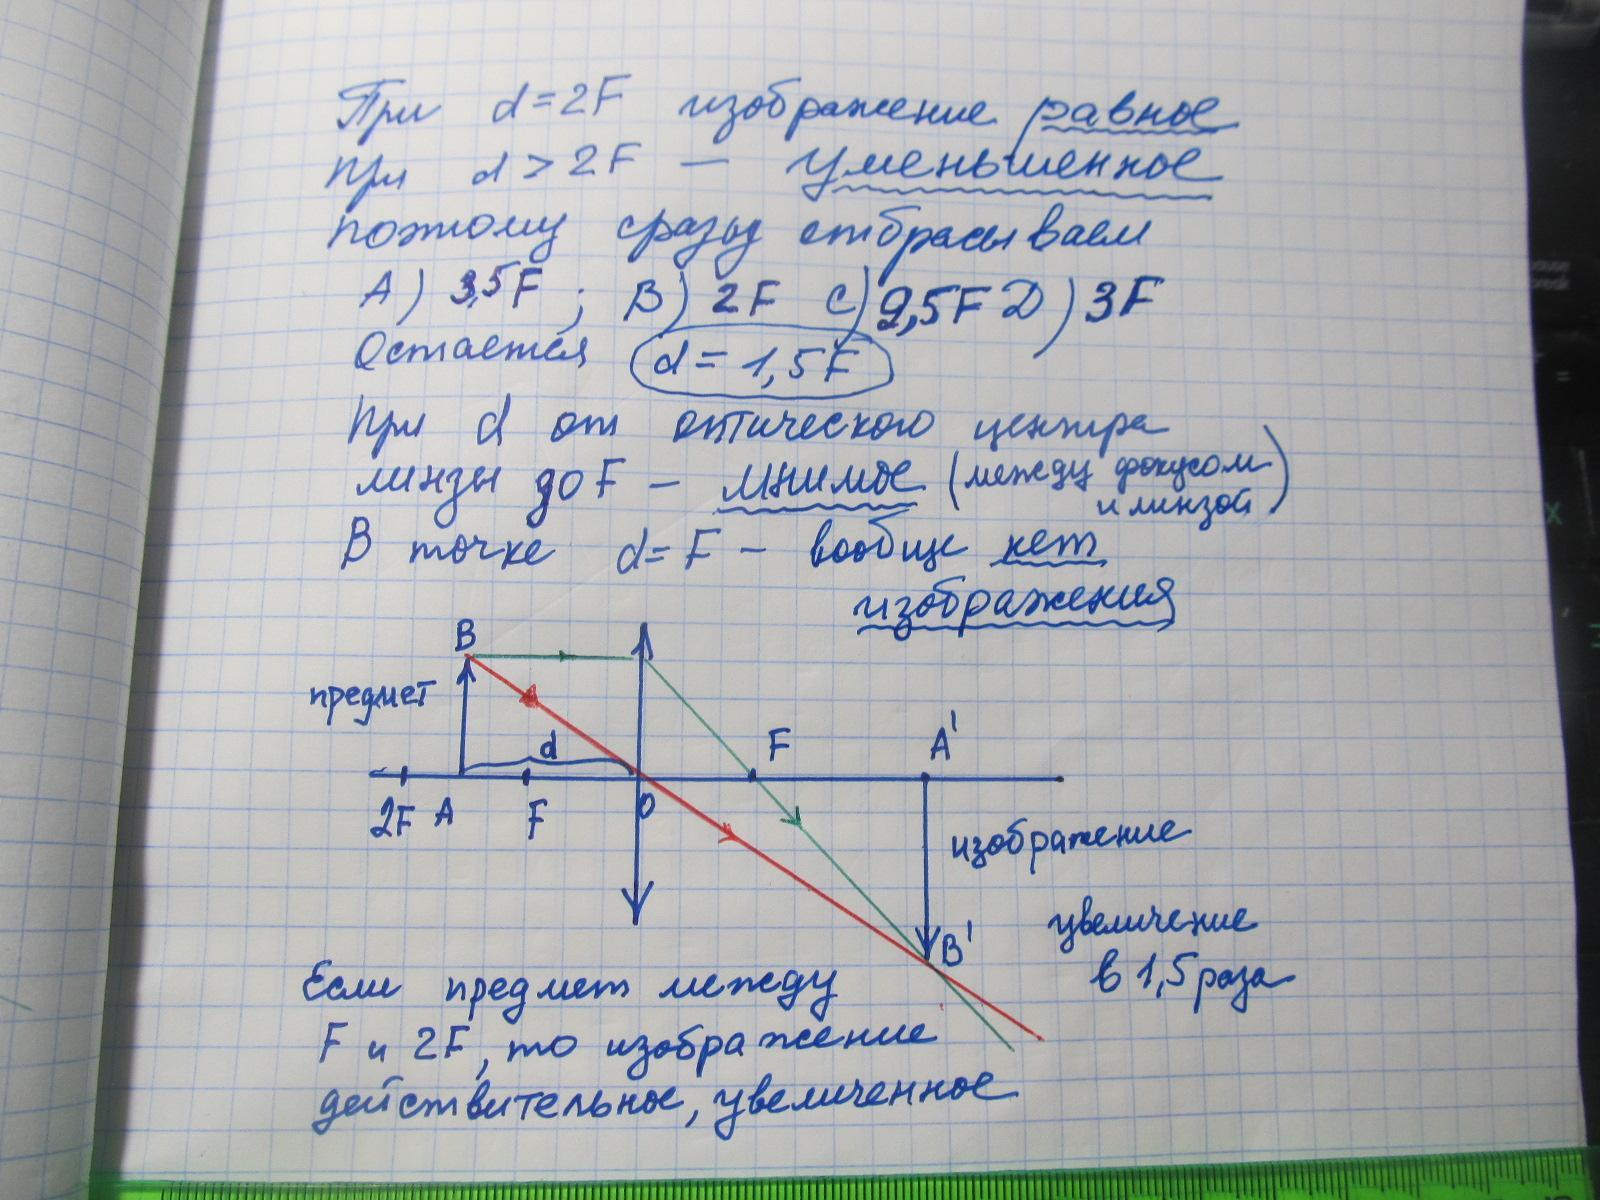 При d=2F изображение равное
при d>2F — уменьшенное
поэтому сразу отбрасываем
А) 3,5F ; В) 2F С) 2,5F Д) 3F
Остается d = 1,5F
При d от оптического центра
линзы до F — мнимое (между фокусом
и линзой)
В точке d=F — вообще нет
изображения
B
предмет
d
F
A'
2F A F O
изображение
увеличение
в 1,5 раза
B'
Если предмет между
F и 2F, то изображение
действительное, увеличенное